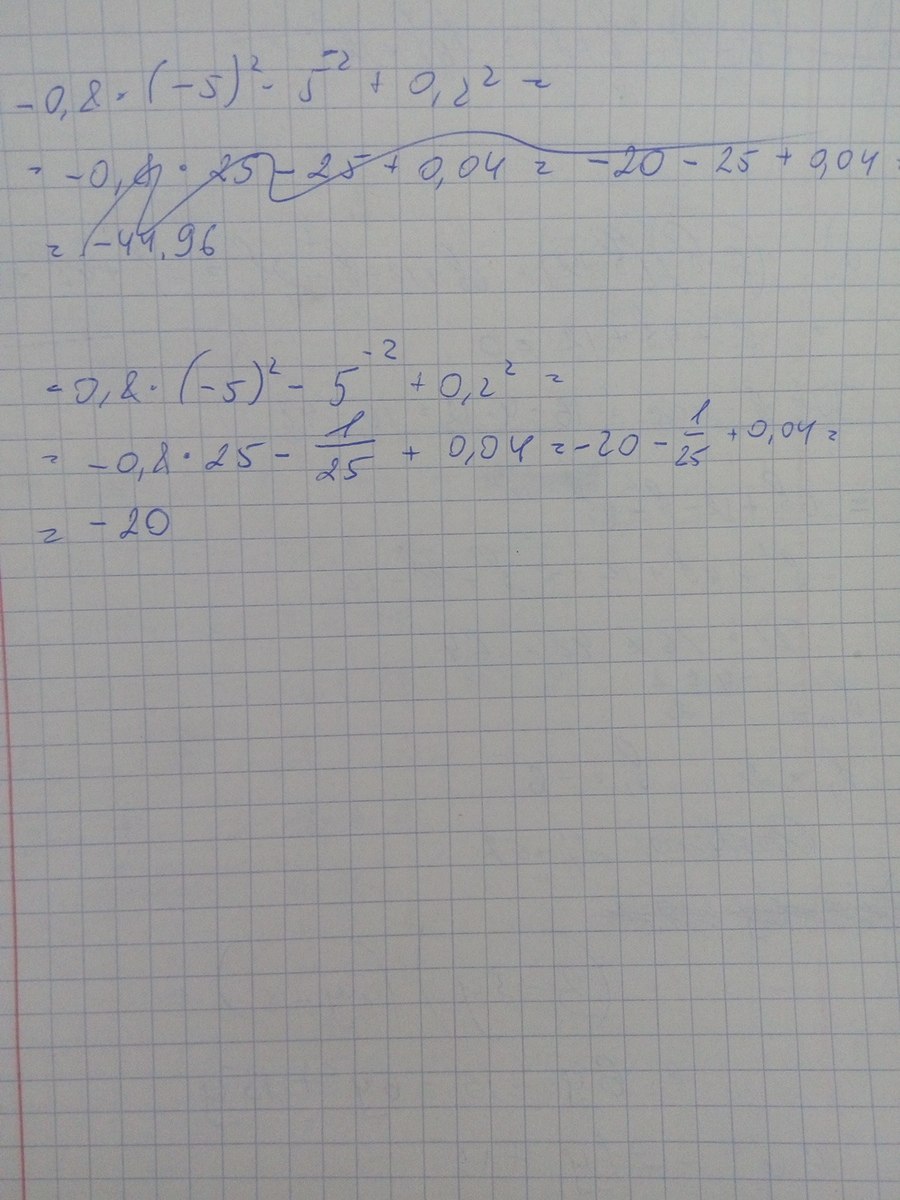 -0,8·(-5)² - 5⁻² + 0,2² =
= -0,8·25 - 25 + 0,04 = -20 - 25 + 0,04 =
= -44,96
-0,8·(-5)² - 5⁻² + 0,2² =
= -0,8·25 - 1/25 + 0,04 = -20 - 1/25 + 0,04 =
= -20